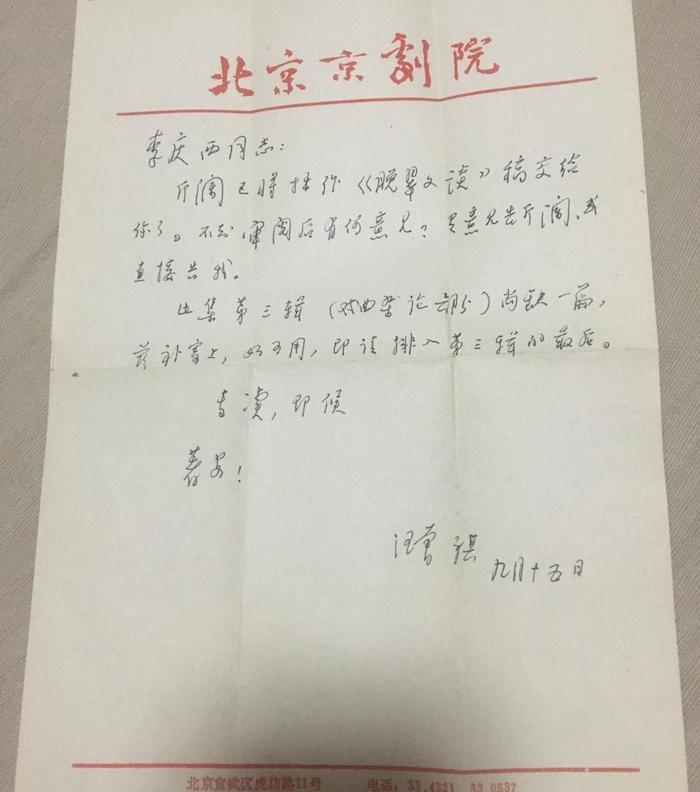 北京京劇院
李庆西同志：
斤澜已将拙作《晚翠文谈》稿交给
你了。不知审阅后有何意见？有意见告斤澜、或
直接告我。
此集第三辑（戏曲杂论部分）尚缺一篇，
兹补寄上，如可用，即请排入第三辑的最后。
专渎，即候
著安！
汪曾祺
九月十五日
北京宣武区虎坊路11号 电话：33.4321 33.0537